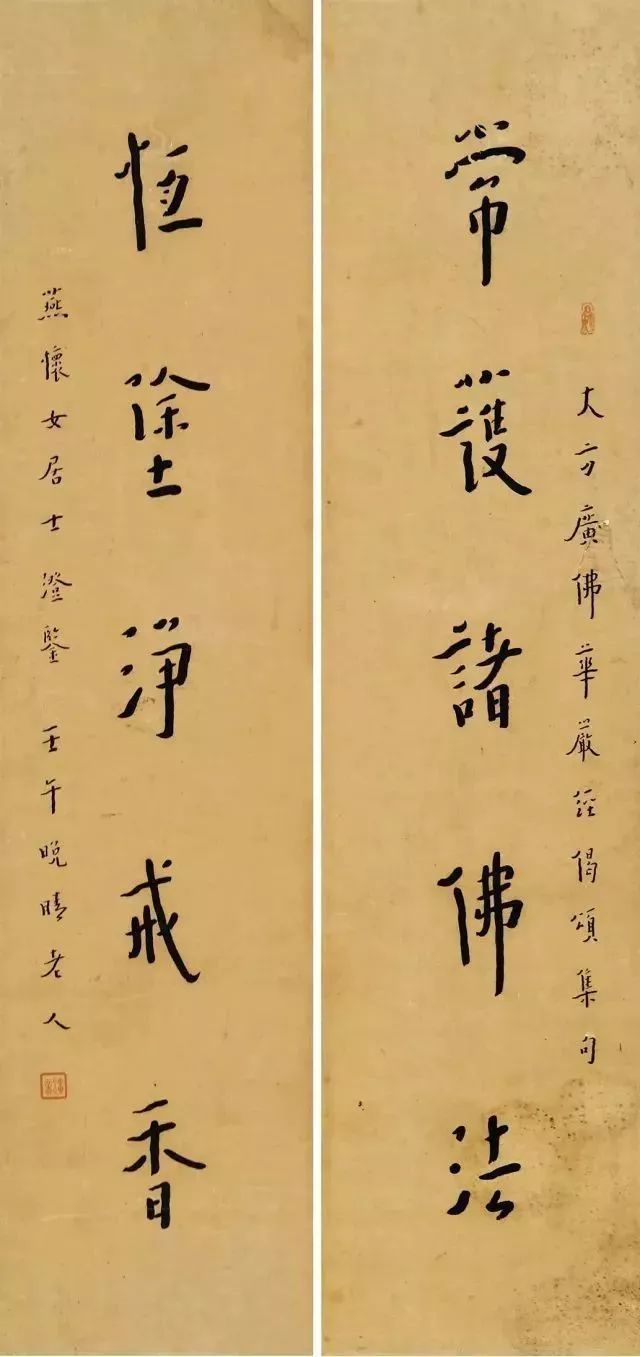 大方廣佛華嚴經偈頌集句
常護諸佛法
恒塗淨戒香
燕懷女居士澄鑒 壬午晚晴老人